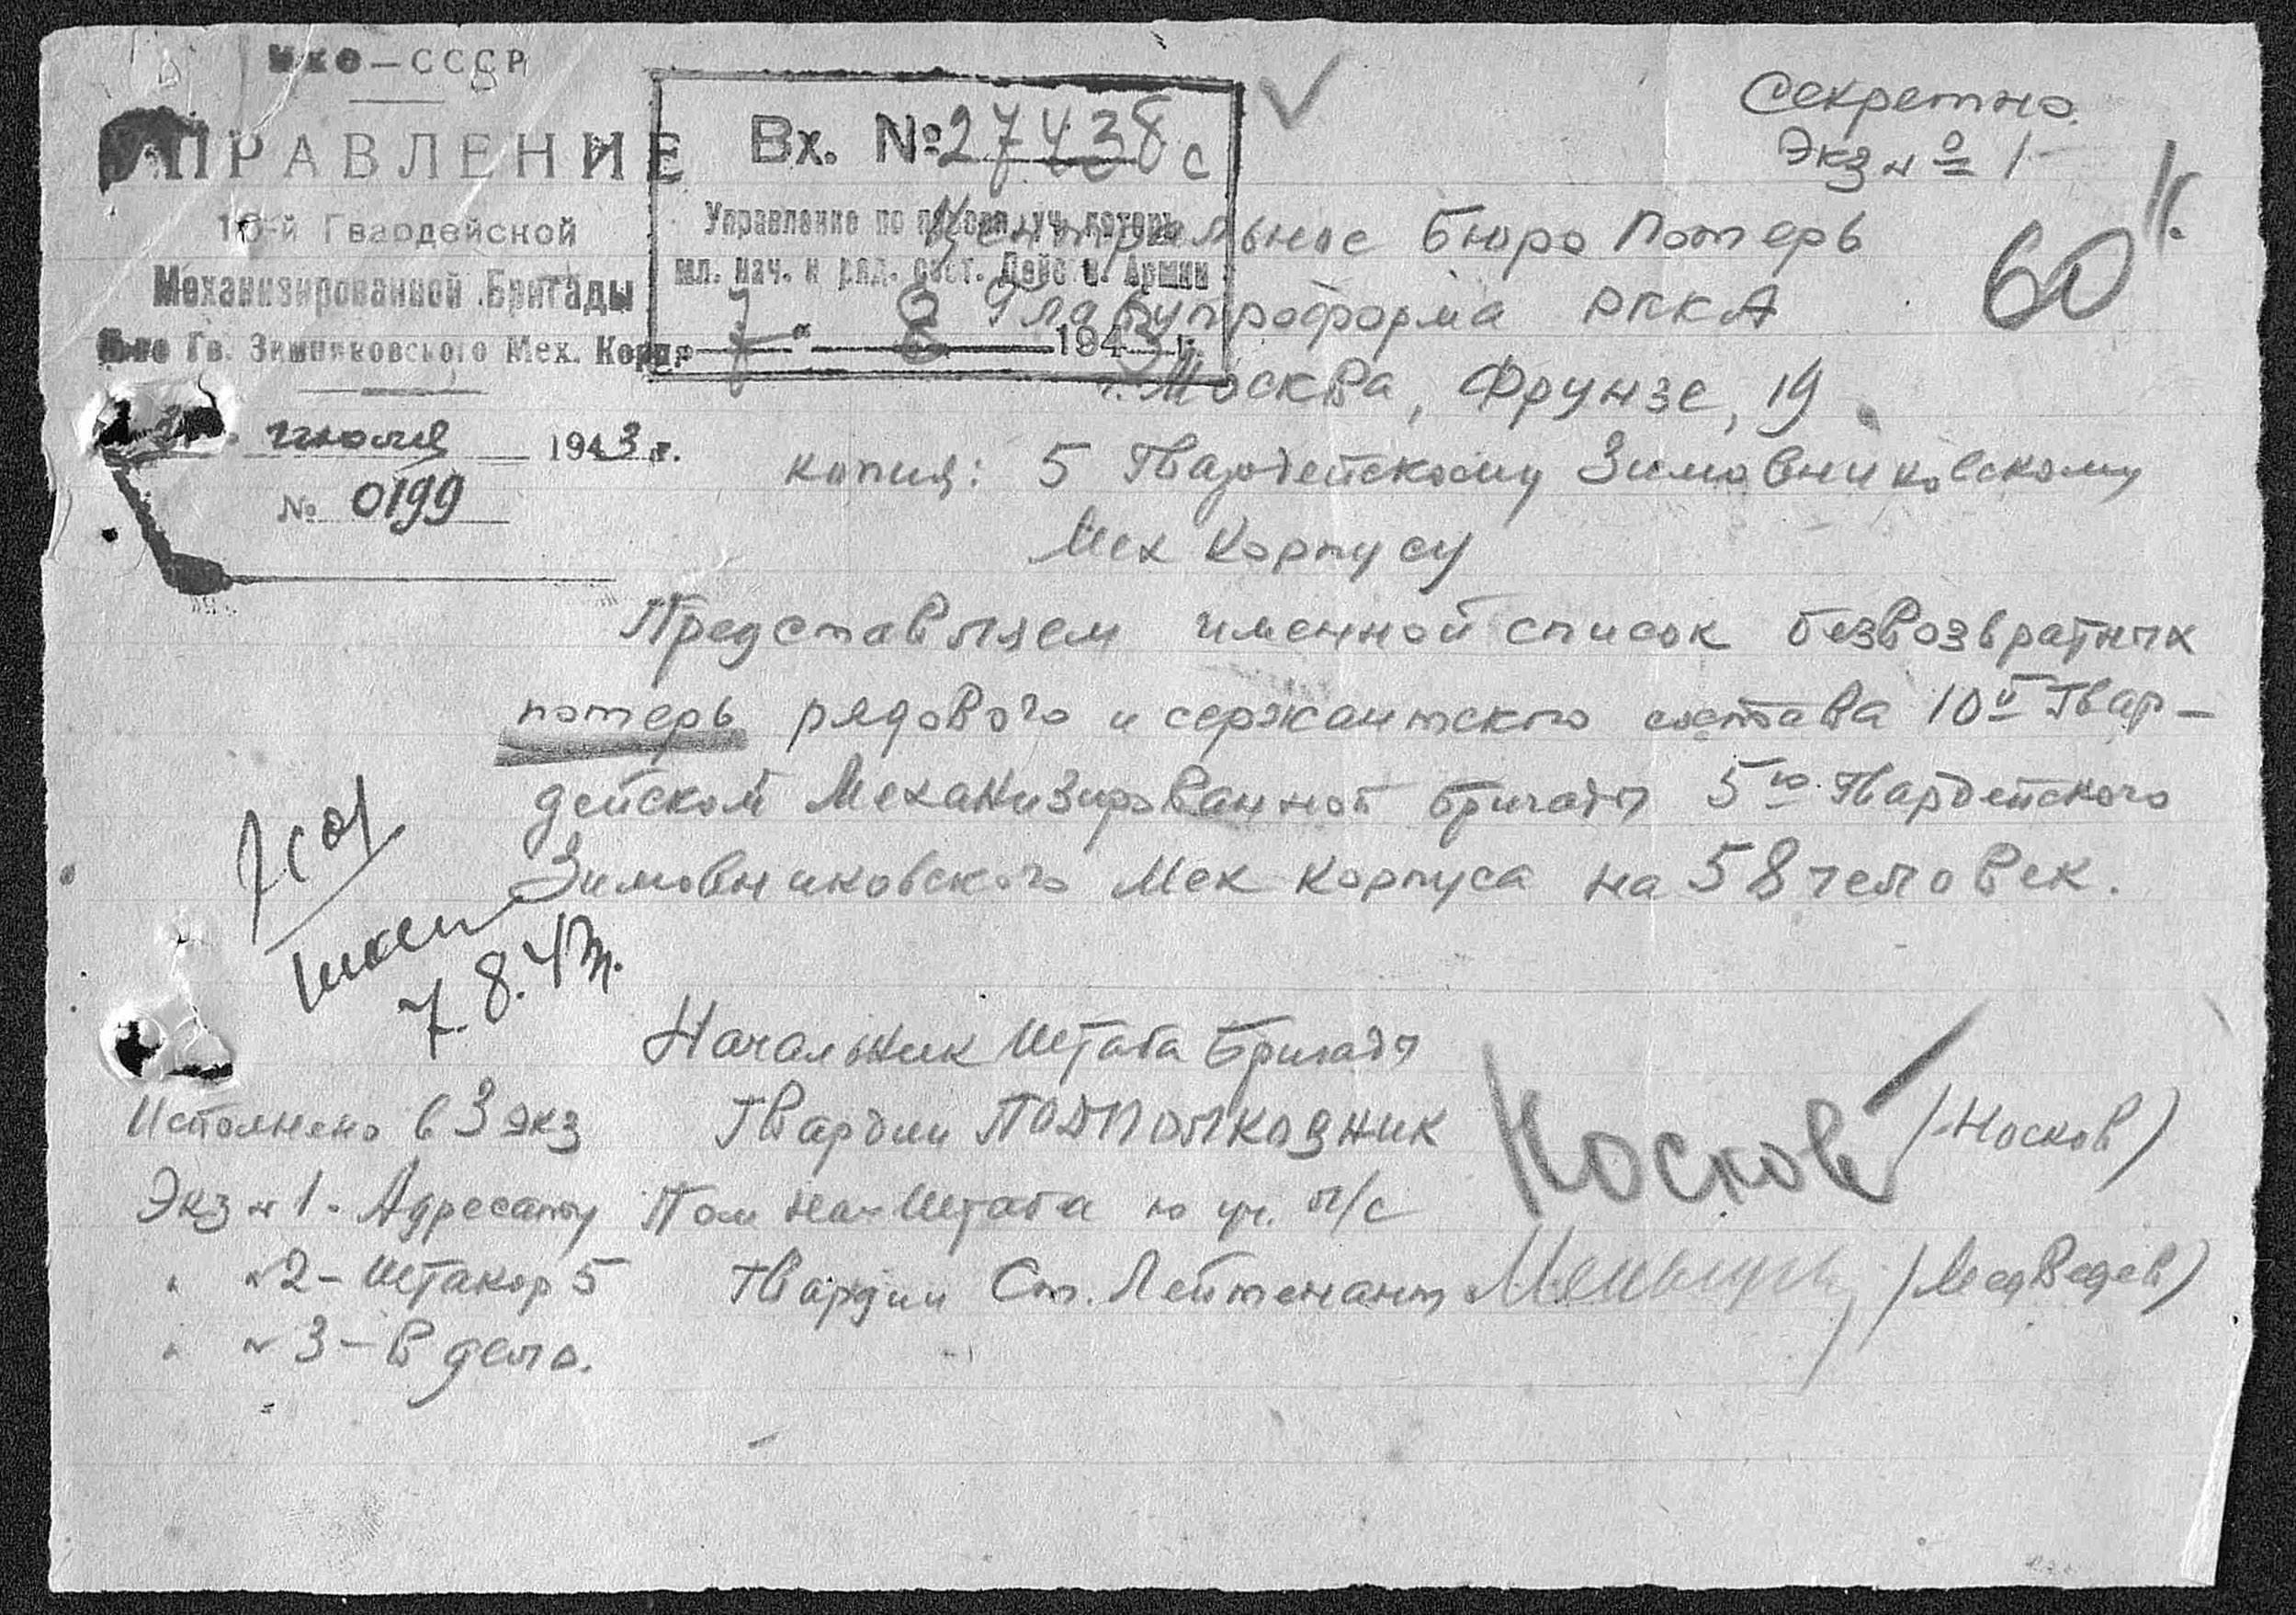 НКО — СССР
УПРАВЛЕНИЕ
10-й Гвардейской
Механизированной Бригады
5-го Гв. Зимниковского Мех. Корп.
июля 1943 г.
№ 0199
Вх. № 27438 с
Управление по персон. уч. потерь
мл. нач. и ряд. сост. Действ. Армии
7 " 8 1943 г.
Секретно.
Экз № 1
60
Центральное Бюро Потерь
Главупроформа РККА
г. Москва, Фрунзе, 19.
копия: 5 Гвардейскому Зимовниковскому
Мех Корпусу
Представляем именной список безвозвратных
потерь рядового и сержантского состава 10й Гвар-
дейской Механизированной бригады 5го Гвардейского
Зимовниковского Мех Корпуса на 58 человек.
7.8.43г.
Начальник Штаба Бригады
Гвардии Подполковник Носков /Носков/
Пом нач Штаба по уч. л/с
Гвардии Ст. Лейтенант /Медведев/
Исполнено в 3 экз
Экз № 1 - Адресату
" № 2 - Штакор 5
" № 3 - в дело.